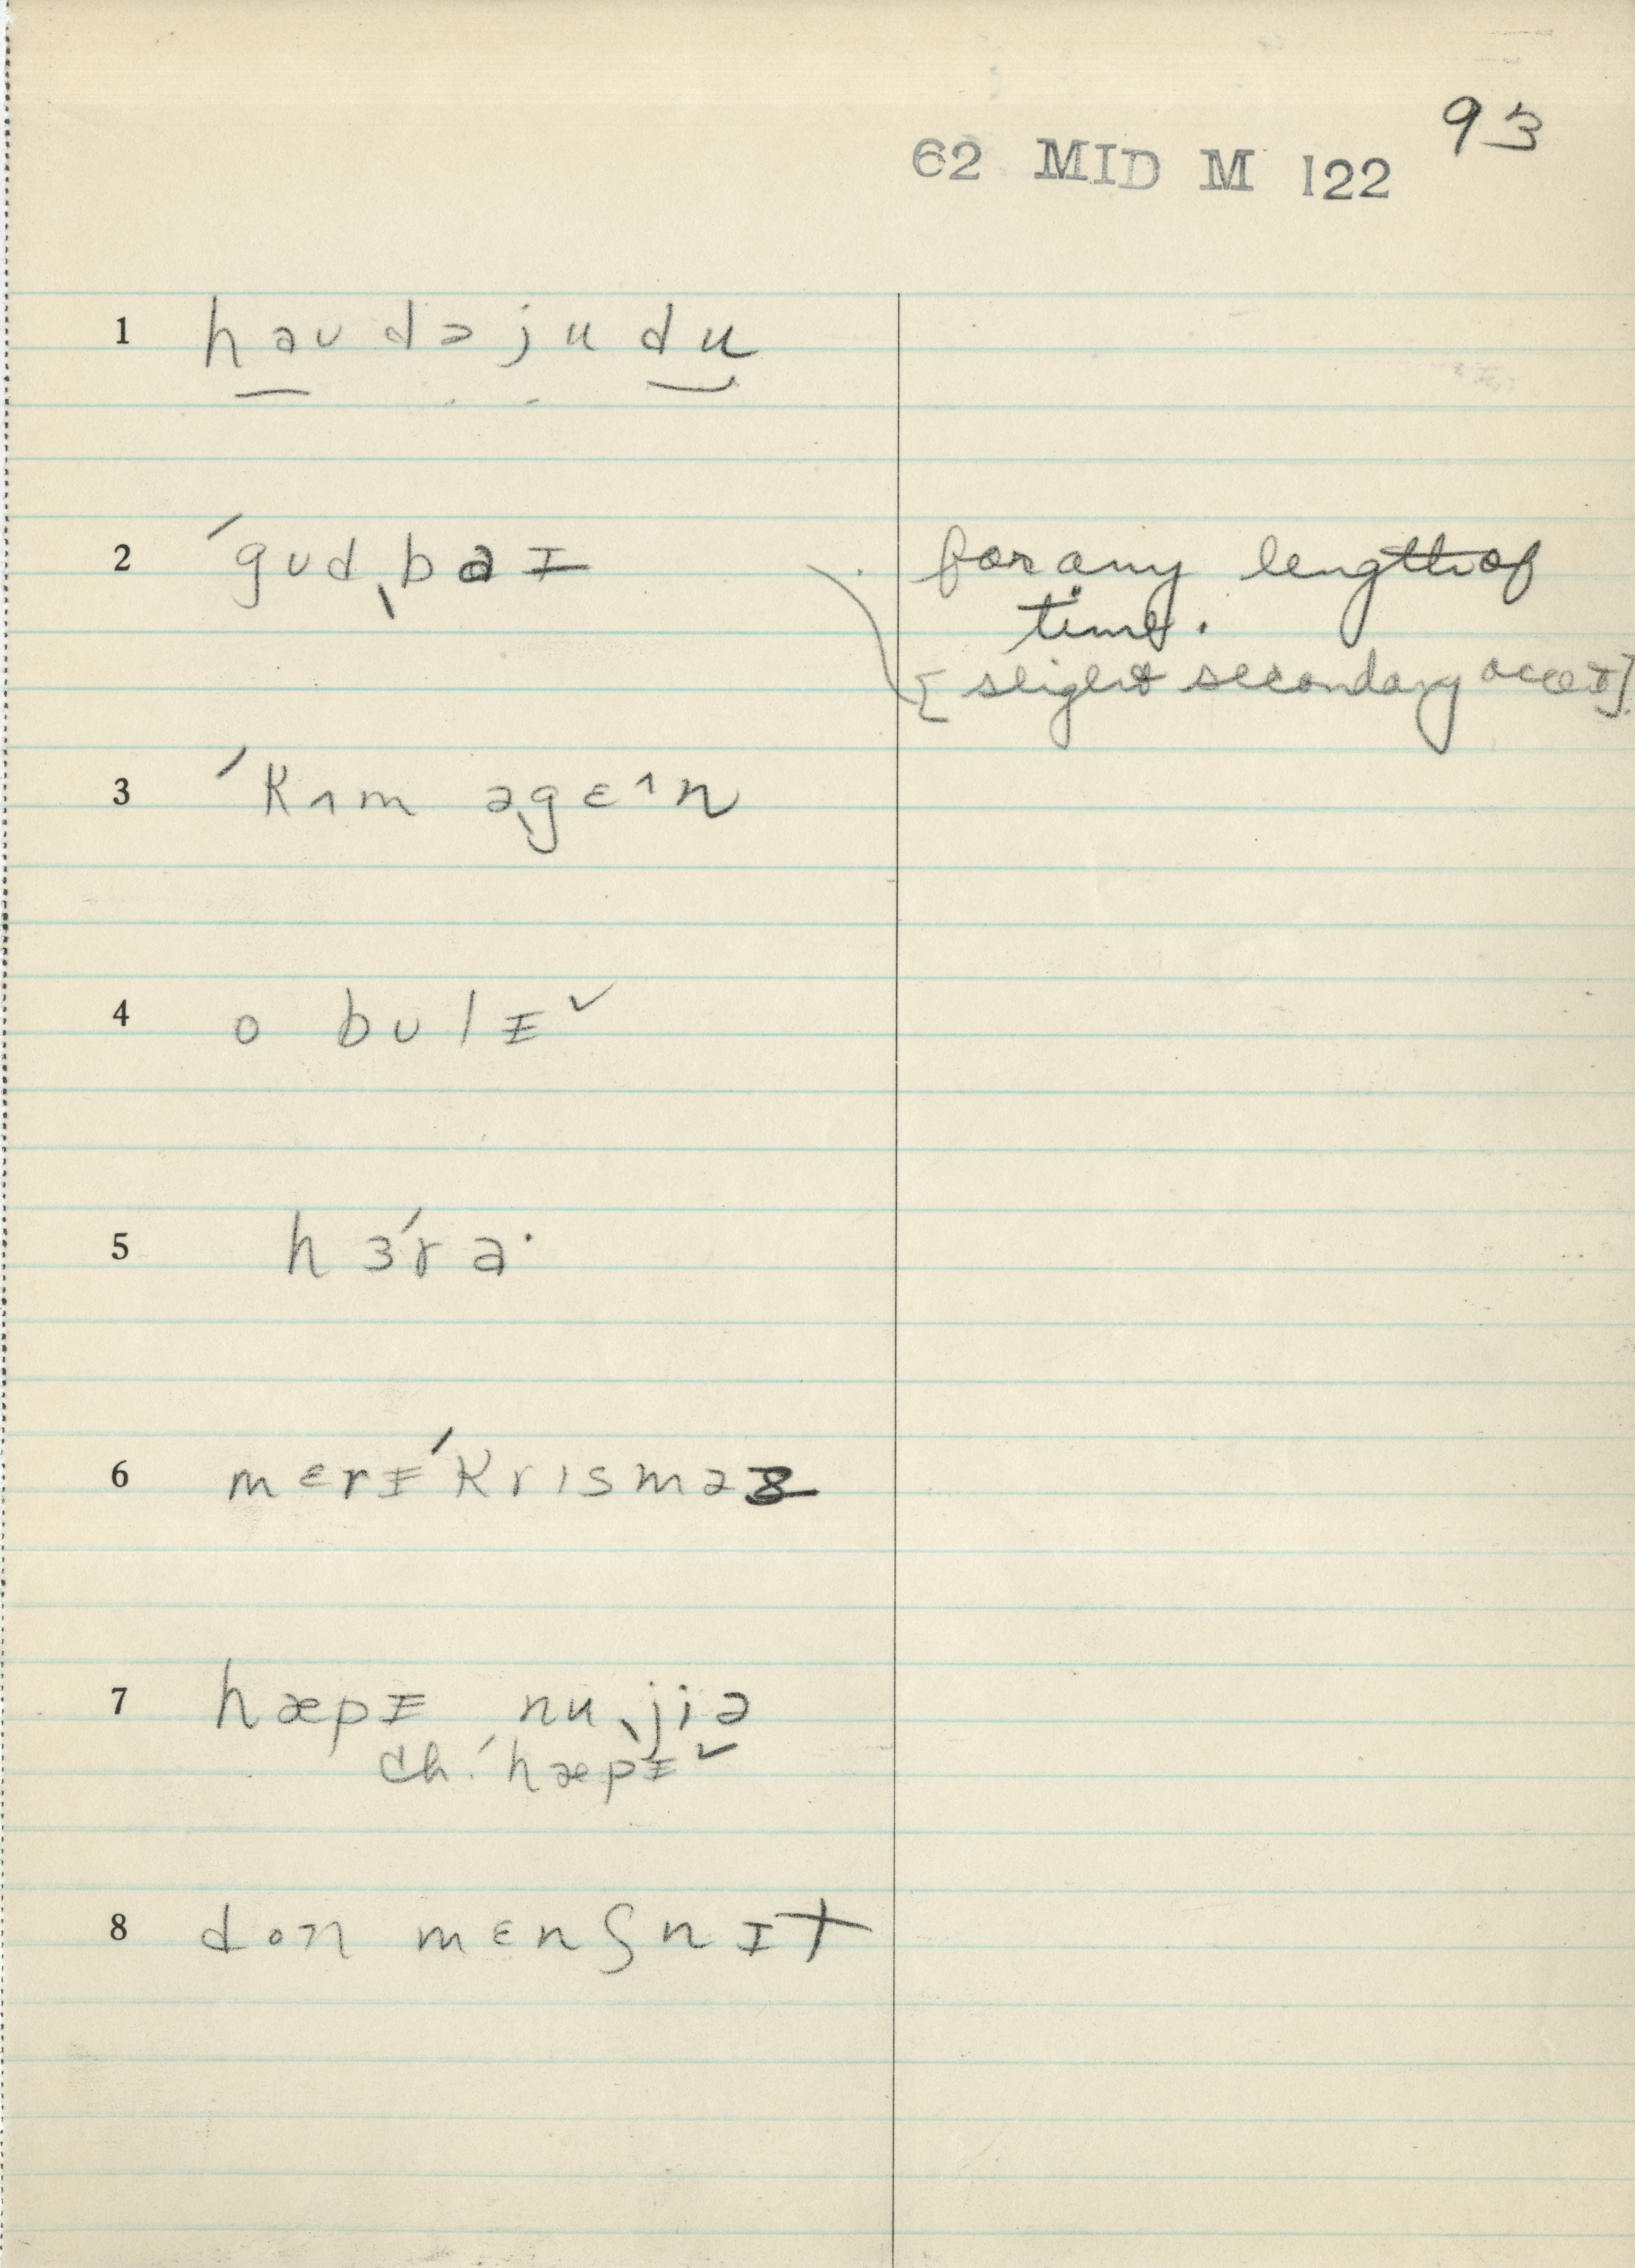 93
62 MID M 122
1 haʊ də ju du
2 ˈgʊdˌbaɪ for any length of
time.
[slight secondary accent]
3 ˈkʌm əˌgɛ^n
4 o bʊlɪ˅
5 hɜ́rə·
6 mɛrɪˈkrɪsməz
7 hæpɪ nuˌjiə
ch. ˈhæpɪ˅
8 don mɛnʃnɪt